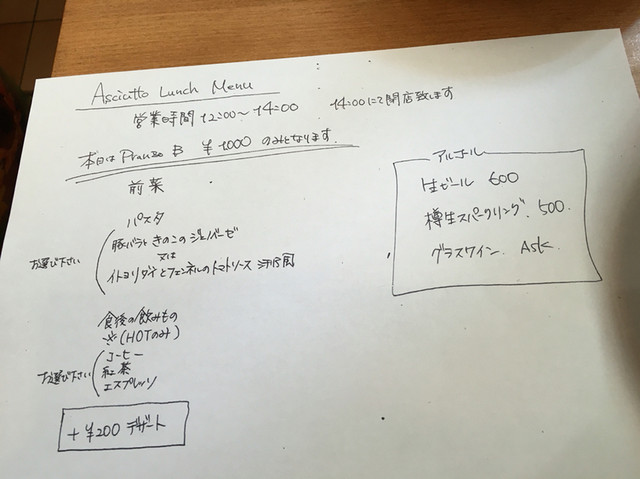 Asciutto Lunch Menu
営業時間 12:00〜14:00 14:00にて閉店致します
本日は Pranzo B ¥1000 のみとなります.
前菜
パスタ
豚バラときのこのジェノベーゼ
又は
イトヨリダイとフェンネルのトマトソース
お選び下さい
食後の飲みもの
(HOTのみ)
コーヒー
紅茶
エスプレッソ
お選び下さい
+¥200 デザート
アルコール
生ビール 600
樽生スパークリング. 500.
グラスワイン. Ask.